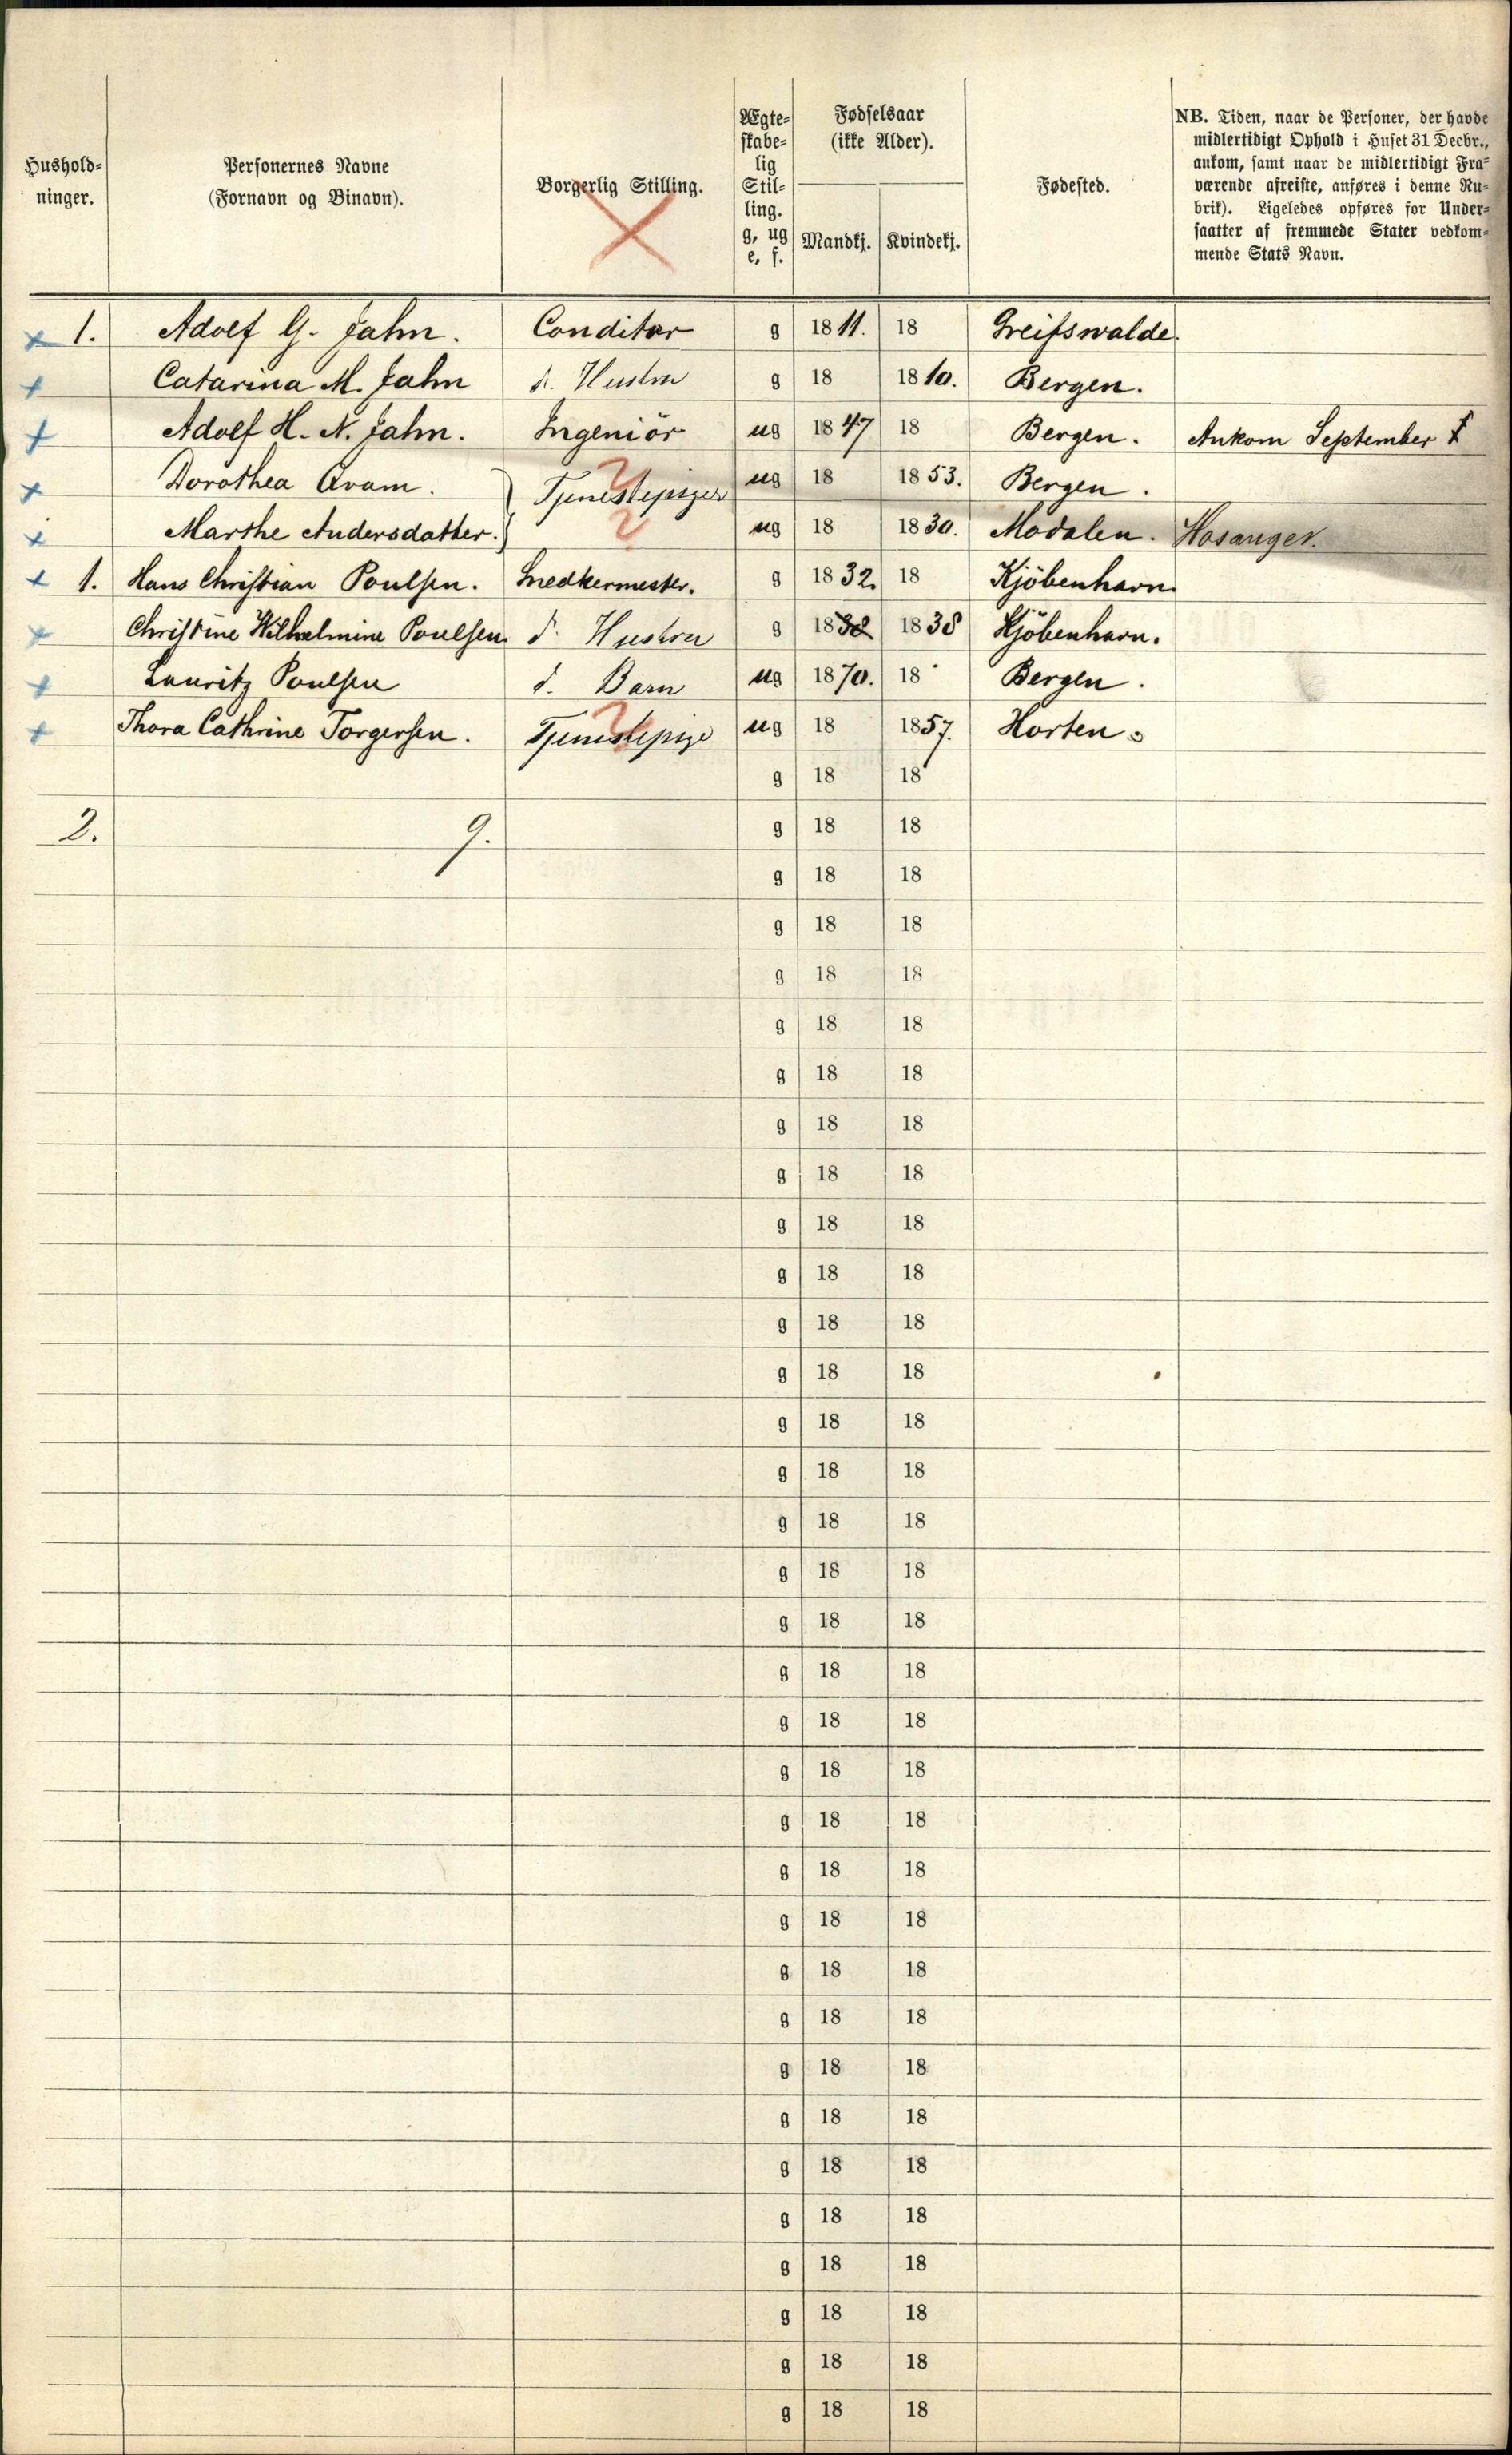 Hushold-
ninger.
Personernes Navne
(Fornavn og Binavn).
Borgerlig Stilling.
Ægte-
skabe-
lig
Stil-
ling.
g, ug
e, f.
Fødselsaar
(ikke Alder).
Mandkj.
Kvindekj.
Fødested.
NB. Tiden, naar de Personer, der havde
midlertidigt Ophold i Huset 31 Decbr.,
ankom, samt naar de midlertidigt Fra-
værende afreiste, anføres i denne Ru-
brik). Ligeledes opføres for Under-
saatter af fremmede Stater vedkom-
mende Stats Navn.
x 1. Adolf G. Jahn. Conditor g 1811. 18 Greifswalde.
x Catarina M. Jahn d. Hustru g 18 1810. Bergen.
x Adolf H. N. Jahn. Ingeniör ug 1847 18 Bergen. Ankom September
x Dorothea Qvam. } Tjenestepiger ug 18 1853. Bergen.
x Marthe Andersdatter. } ug 18 1830. Modalen. Hosanger.
x 1. Hans Christian Poulsen. Snedkermester. g 1832. 18 Kjöbenhavn.
x Christine Wilhelmine Poulsen. d. Hustru g 1838 1838 Kjöbenhavn.
x Lauritz Poulsen d. Barn ug 1870. 18 Bergen.
x Thora Cathrine Torgersen. Tjenestepige ug 18 1857. Horten.
g 18 18
2. 9. g 18 18
g 18 18
g 18 18
g 18 18
g 18 18
g 18 18
g 18 18
g 18 18
g 18 18
g 18 18
g 18 18
g 18 18
g 18 18
g 18 18
g 18 18
g 18 18
g 18 18
g 18 18
g 18 18
g 18 18
g 18 18
g 18 18
g 18 18
g 18 18
g 18 18
g 18 18
g 18 18
g 18 18
g 18 18
g 18 18
g 18 18
g 18 18
g 18 18